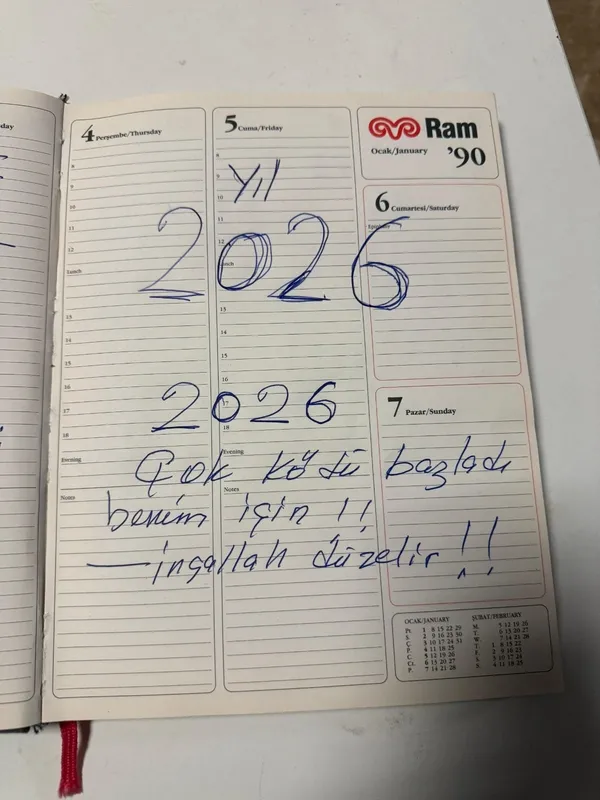 4 Perşembe/Thursday
8
9
9
10
11
12
lunch
13
13
14
15
16
17
18
Evening
Notes
5 Cuma/Friday
8
9
10
11
12
lunch
13
14
15
16
17
18
Evening
Notes
Ram
Ocak/January '90
6 Cumartesi/Saturday
7 Pazar/Sunday
Yıl
2026
2026
Çok kötü bazladı
benim için !!
— inşallah düzelir !!
OCAK/JANUARY
Pt. 1 8 15 22 29
S. 2 9 16 23 30
Ç. 3 10 17 24 31
P. 4 11 18 25
C. 5 12 19 26
Ct. 6 13 20 27
P. 7 14 21 28
ŞUBAT/FEBRUARY
M. 5 12 19 26
T. 6 13 20 27
W. 7 14 21 28
T. 1 8 15 22
F. 2 9 16 23
S. 3 10 17 24
S. 4 11 18 25
day